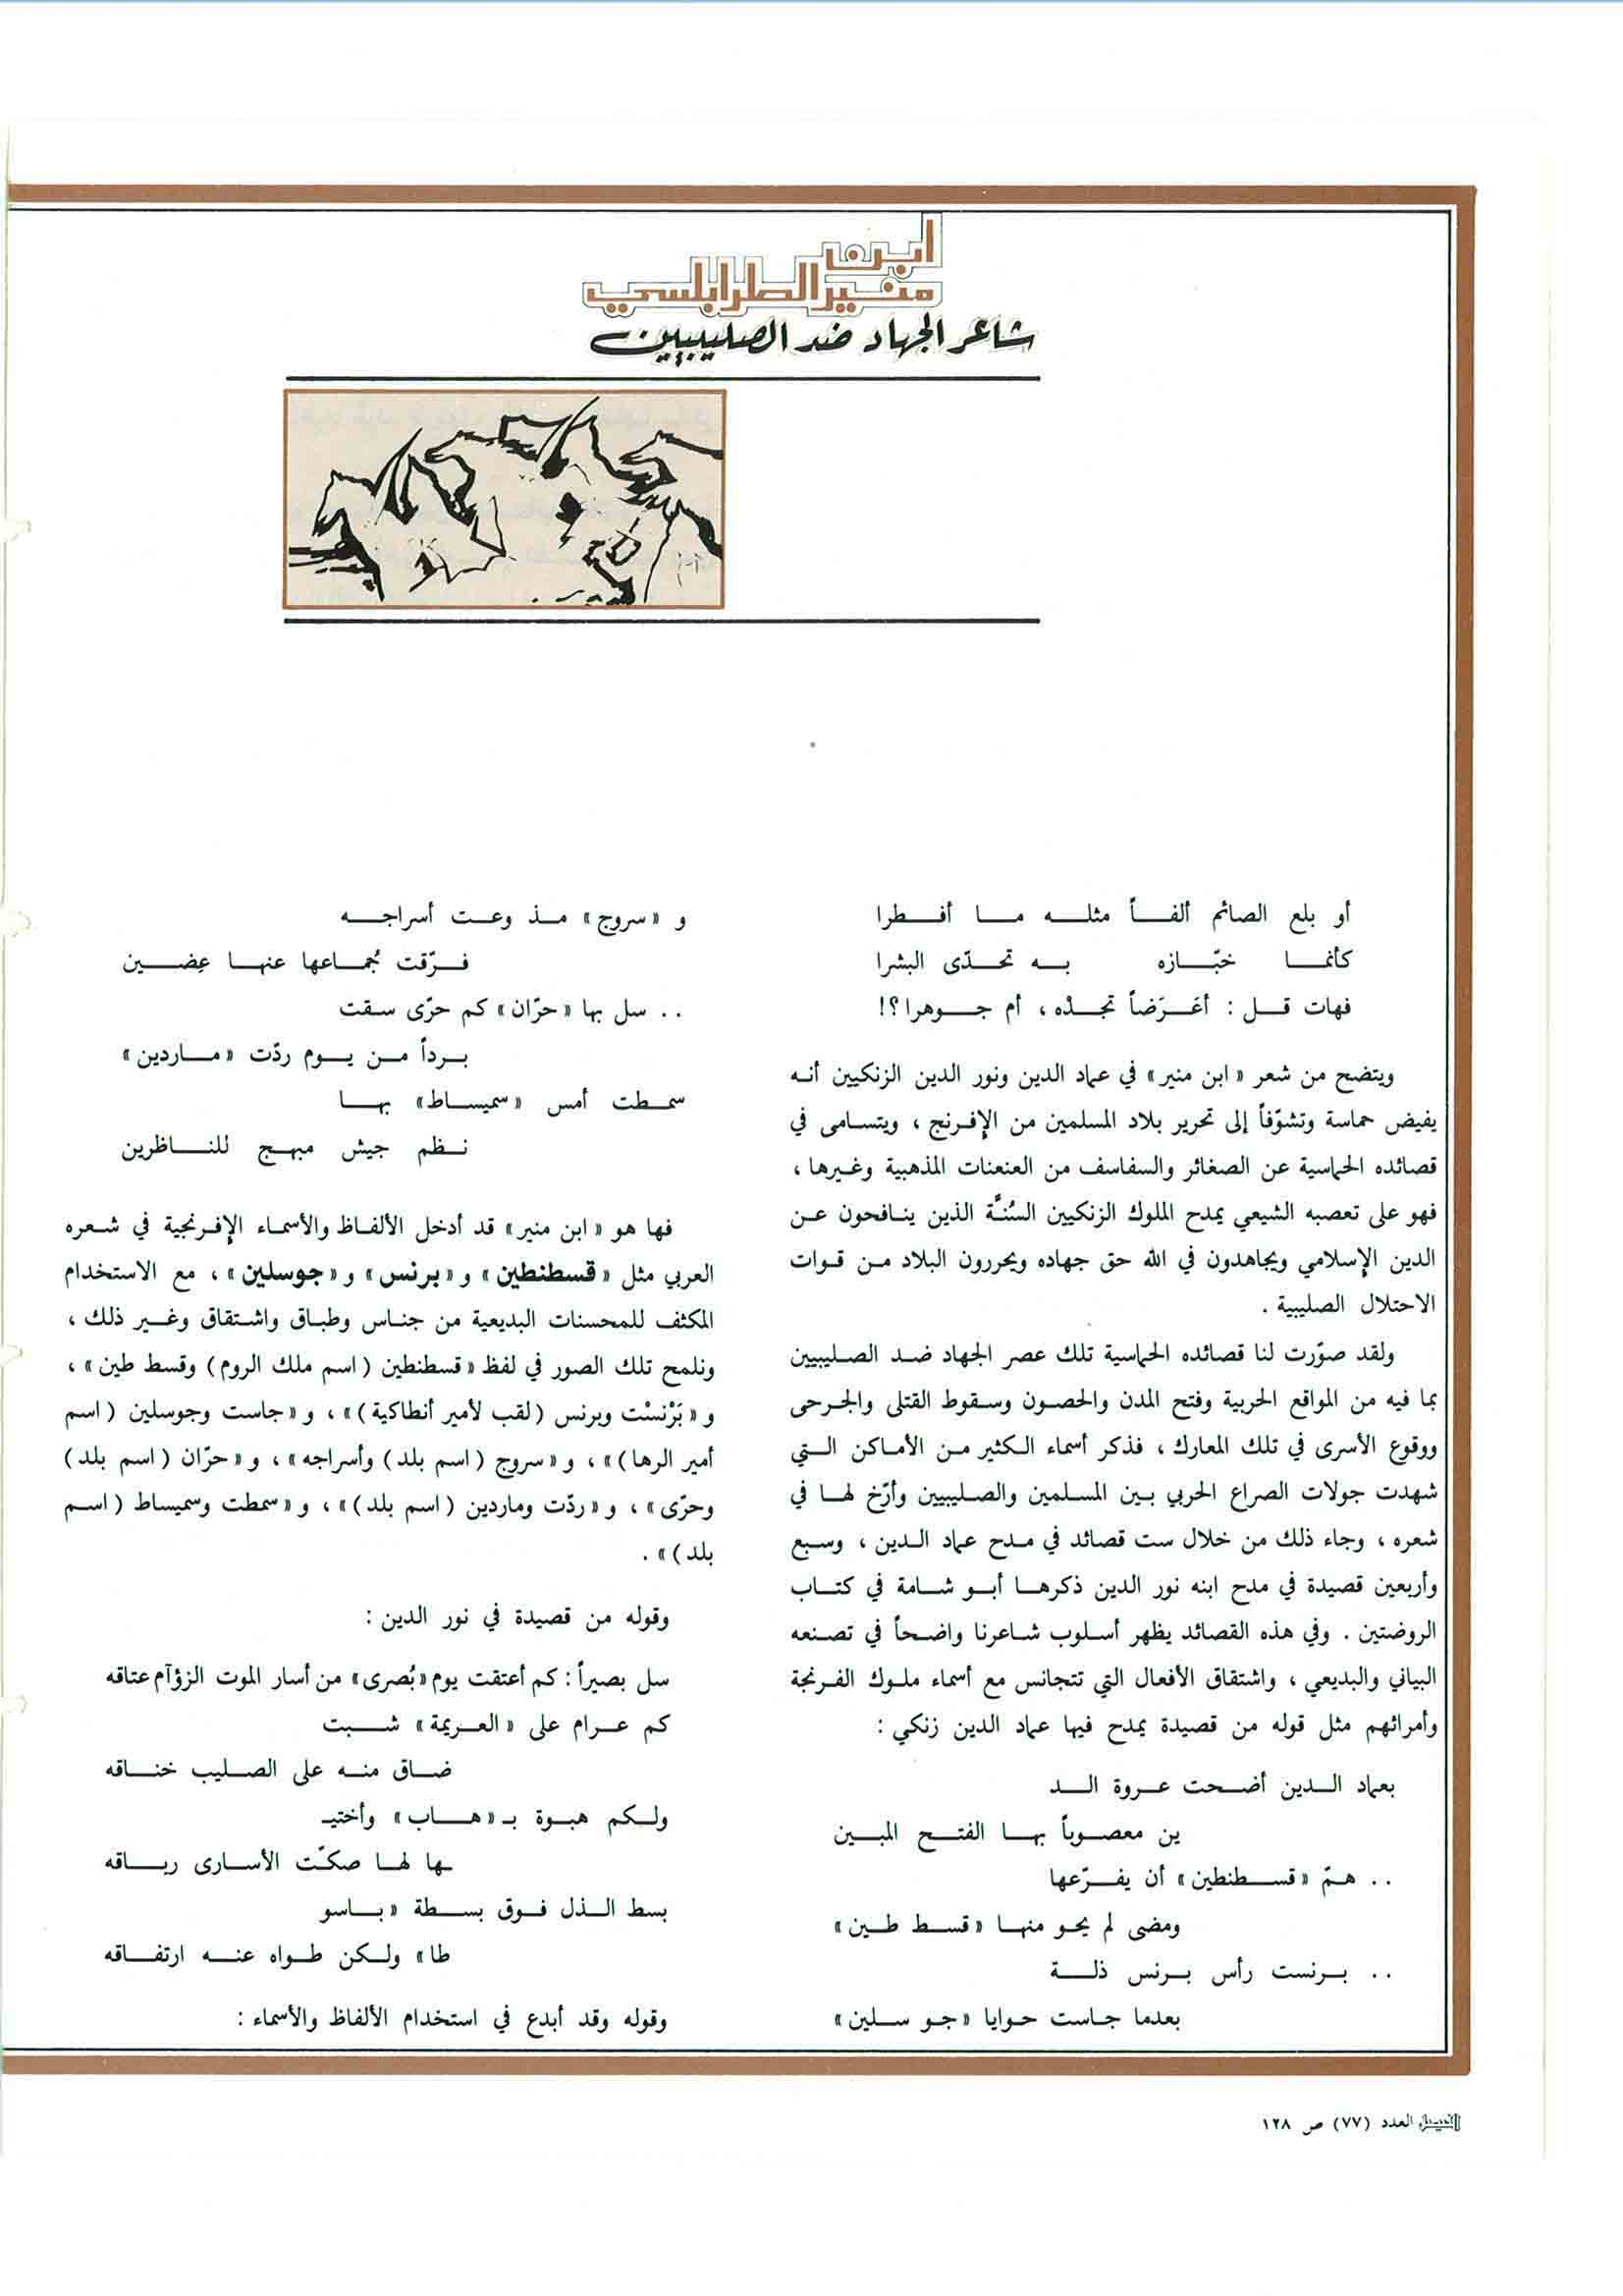 ابن
منير الطرابلسي
شاعر الجهاد ضد الصليبيين
أو بلع الصائم ألفاً مثله ما أفطرا
كأنما خبّازه به تحدّى البشرا
فهات قل : أعَرَضاً تجدْه ، أم جوهرا؟!
ويتضح من شعر « ابن منير » في عماد الدين ونور الدين الزنكيين أنه
يفيض حماسة وتشوّفاً إلى تحرير بلاد المسلمين من الإفرنج ، ويتسامى في
قصائده الحماسية عن الصغائر والسفاسف من العنعنات المذهبية وغيرها ،
فهو على تعصبه الشيعي يمدح الملوك الزنكيين السُنَّة الذين ينافحون عن
الدين الإسلامي ويجاهدون في الله حق جهاده ويحررون البلاد من قوات
الاحتلال الصليبية .
ولقد صوّرت لنا قصائده الحماسية تلك عصر الجهاد ضد الصليبيين
بما فيه من المواقع الحربية وفتح المدن والحصون وسقوط القتلى والجرحى
ووقوع الأسرى في تلك المعارك ، فذكر أسماء الكثير من الأماكن التي
شهدت جولات الصراع الحربي بين المسلمين والصليبيين وأرّخ لها في
شعره ، وجاء ذلك من خلال ست قصائد في مدح عماد الدين ، وسبع
وأربعين قصيدة في مدح ابنه نور الدين ذكرها أبو شامة في كتاب
الروضتين . وفي هذه القصائد يظهر أسلوب شاعرنا واضحاً في تصنعه
البياني والبديعي ، واشتقاق الأفعال التي تتجانس مع أسماء ملوك الفرنجة
وأمرائهم مثل قوله من قصيدة يمدح فيها عماد الدين زنكي :
بعماد الدين أضحت عروة الد
ين معصوباً بها الفتح المبين
.. همّ « قسطنطين » أن يفرّعها
ومضى لم يحو منها « قسط طين »
.. برنست رأس برنس ذلة
بعدما جاست حوايا « جو سلين »
و « سروج » مذ وعت أسراجه
فرّقت جُماعها عنها عِضين
.. سل بها « حرّان » كم حرّى سقت
برداً من يوم ردّت « ماردين »
سمطت أمس « سميساط » بها
نظم جيش مبهج للناظرين
فها هو « ابن منير » قد أدخل الألفاظ والأسماء الإفرنجية في شعره
العربي مثل « قسطنطين » و « برنس » و « جوسلين » ، مع الاستخدام
المكثف للمحسنات البديعية من جناس وطباق واشتقاق وغير ذلك ،
ونلمح تلك الصور في لفظ « قسطنطين (اسم ملك الروم) وقسط طين » ،
و « بَرْنسْت وبرنس (لقب لأمير أنطاكية) » ، و « جاست وجوسلين (اسم
أمير الرها) » ، و « سروج (اسم بلد) وأسراجه » ، و « حرّان (اسم بلد)
وحرّى » ، و « ردّت وماردين (اسم بلد) » ، و « سمطت وسميساط (اسم
بلد) » .
وقوله من قصيدة في نور الدين :
سل بصيراً : كم أعتقت يوم « بُصرى » من أسار الموت الزؤآم عتاقه
كم عرام على « العريمة » شبت
ضاق منه على الصليب خناقه
ولكم هبوة بـ « هاب » وأختيـ
ـها لها صكّت الأسارى رباقه
بسط الذل فوق بسطة « باسو
طا » ولكن طواه عنه ارتفاقه
وقوله وقد أبدع في استخدام الألفاظ والأسماء :
الفيصل العدد (٧٧) ص ١٢٨